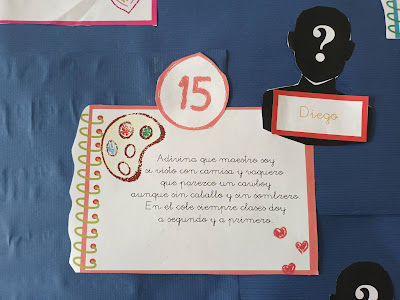 ?
15
Diego
Adivina que maestro soy
si visto con camisa y vaquero
que parezco un cowboy
aunque sin caballo y sin sombrero.
En el cole siempre clases doy
a segundo y a primero.
?